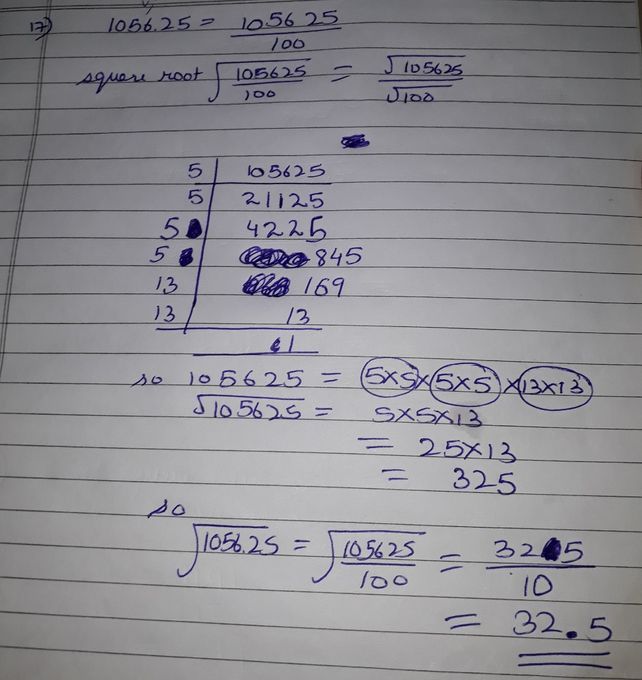 17) 1056.25 = 105625/100
square root √105625/100 = √105625/√100
5 | 105625
5 | 21125
5 | 4225
5 | 845
13 | 169
13 | 13
1
so 105625 = 5×5×5×5×13×13
√105625 = 5×5×13
= 25×13
= 325
so
√1056.25 = √105625/100 = 325/10
= 32.5